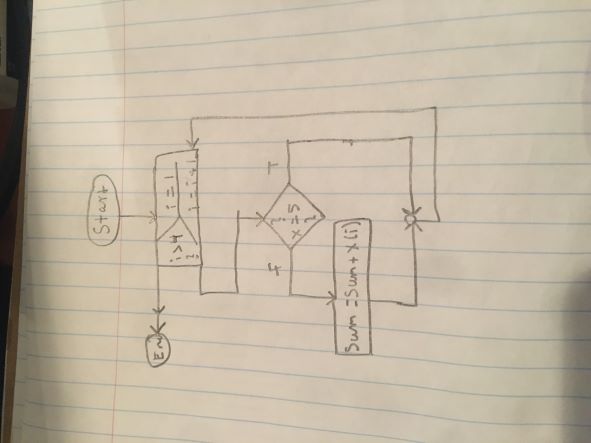 Start
End
i>4
?
i = 1
i = i+1
F
T
x = 5
?
Sum = Sum + x(i)